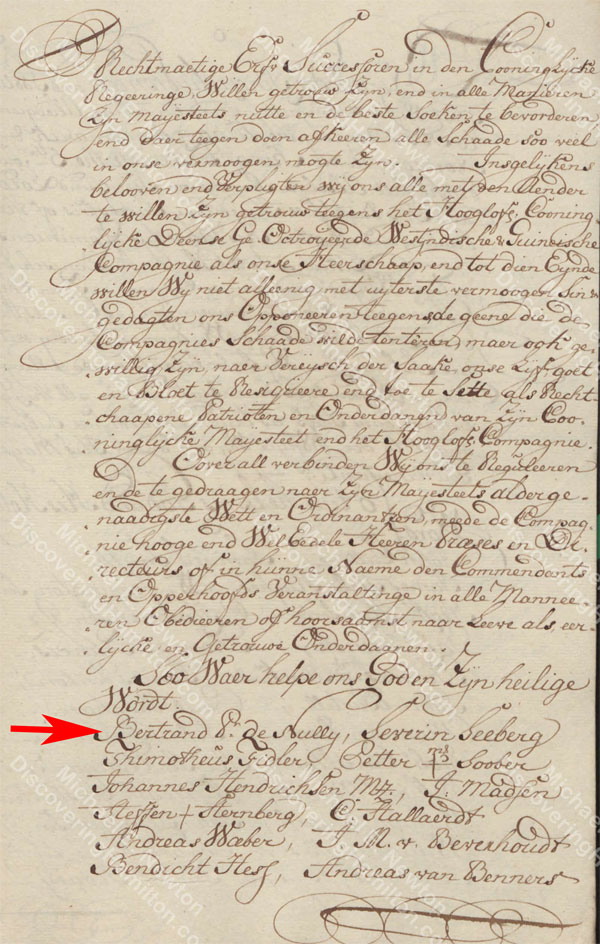 Rechtmaetige Erfv Successoren in den Cooninglÿcke
Regeeringe Willen getrouw Zÿn, end in alle Manieren
Zÿn Mayesteets nutte en de beste Soeken te bevorderen,
end daer teegen doen afkeeren alle Schaade Soo veel
in onse vermoogen mogte Zÿn. Insgelÿkens
belooven end Verpligten wÿ ons alle met den Aender
te willen Zÿn getrouw teegens het Hooglofs. Cooning-
lÿcke Deense Ge Octroÿeerde Westjndische & Guineische
Compagnie als onse Heerschaap, end tot dien Eÿnde
willen Wÿ niet alleenig met uÿterste vermoogen Sin &
gedagten ons Opponeeren teegens de geene die de
Compagnies Schaade wilde tenteren, maer ogk ge-
willig Zÿn, naer Vereÿsch der Saake, onse Lÿf goet
en Bloet te Resigneere end toe te Sette als Recht-
chaapene Patriotten en Onderdangend van Zÿn Coo-
ninglÿcke Mayesteet end het Hooglofs. Compagnie.
Over all verbinden Wÿ ons te Reguleeren
en de te gedraagen naer Zÿn Maÿesteets alderge-
naadigste Wett en Ordinantzen meede de Compag-
nie hooge end Wel Eedele Heeren Præses in De-
recteurs of in hünne Naeme den Commendants
en Opperhoofds Veranstaltinge in alle Mannee-
ren Obedieeren of hoorsaamst naar Leeve als eer-
lÿcke en Getrouwe Onderdagnen.
Soo Waer helpe ons God en Zÿn heilige
Wordt.
Bertrand Pr. De Nully, Severin Seeberg
Thimotheus Fidler, Petter + Soober
Johannes Hendrichsen, J. Madsen
Steffen + Sternberg, C. Hallaerdt
Andreas Waber, J. M. v. Beverhoudt
Bendicht Hess, Andreas van Benners
Discovering Hamilton.com
Michael E. Newton